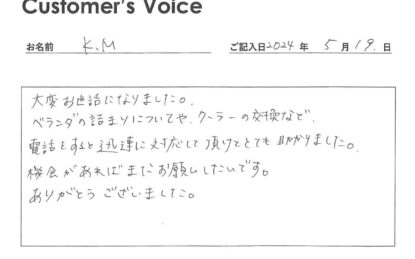 Customer's Voice
お名前 K.M ご記入日2024年 5月19日
大変お世話になりました。
ベランダの詰まりについてや、クーラーの交換など、
電話をすると迅速に対応して頂けてとても助かりました。
機会があればまたお願いしたいです。
ありがとうございました。